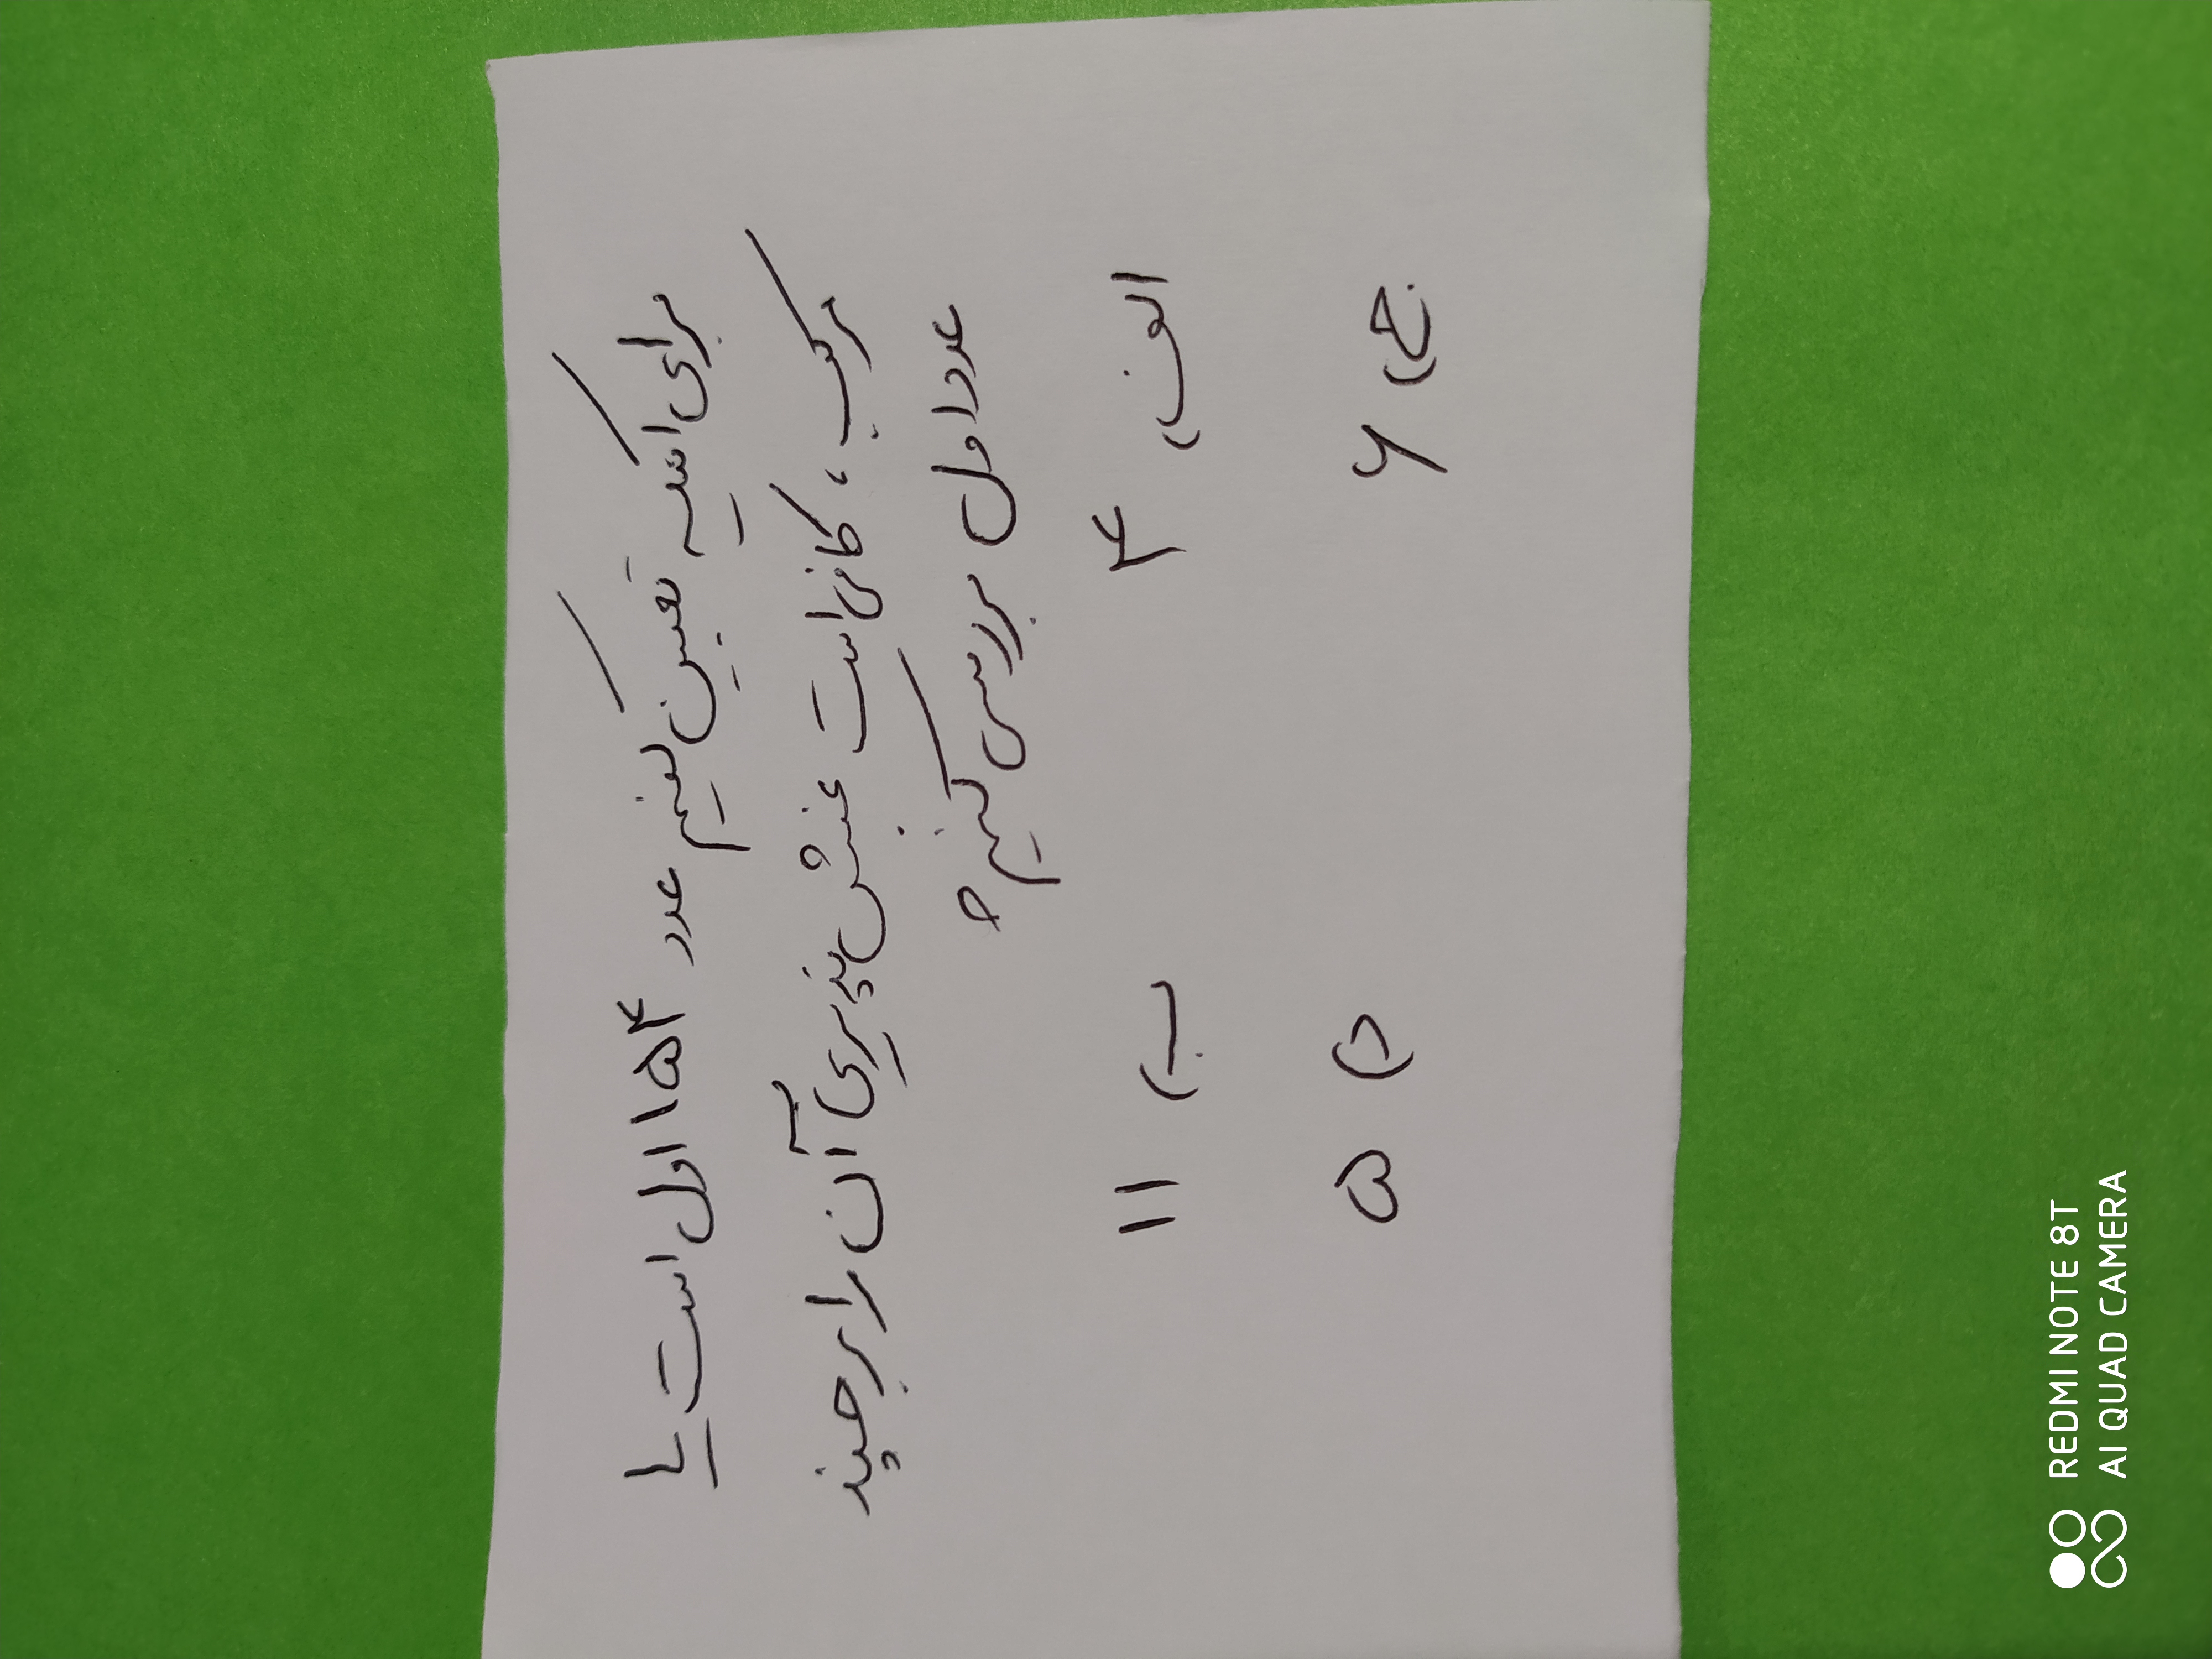 برای اینکه تعیین کنیم عدد ۱۵۴ اول است یا
مرکب، کافی است بخش پذیری آن را بر چند
عدد اول بررسی کنیم؟
الف) ۴ ب) ۱۱
ج) ۶ د) ۵
REDMI NOTE 8T
AI QUAD CAMERA